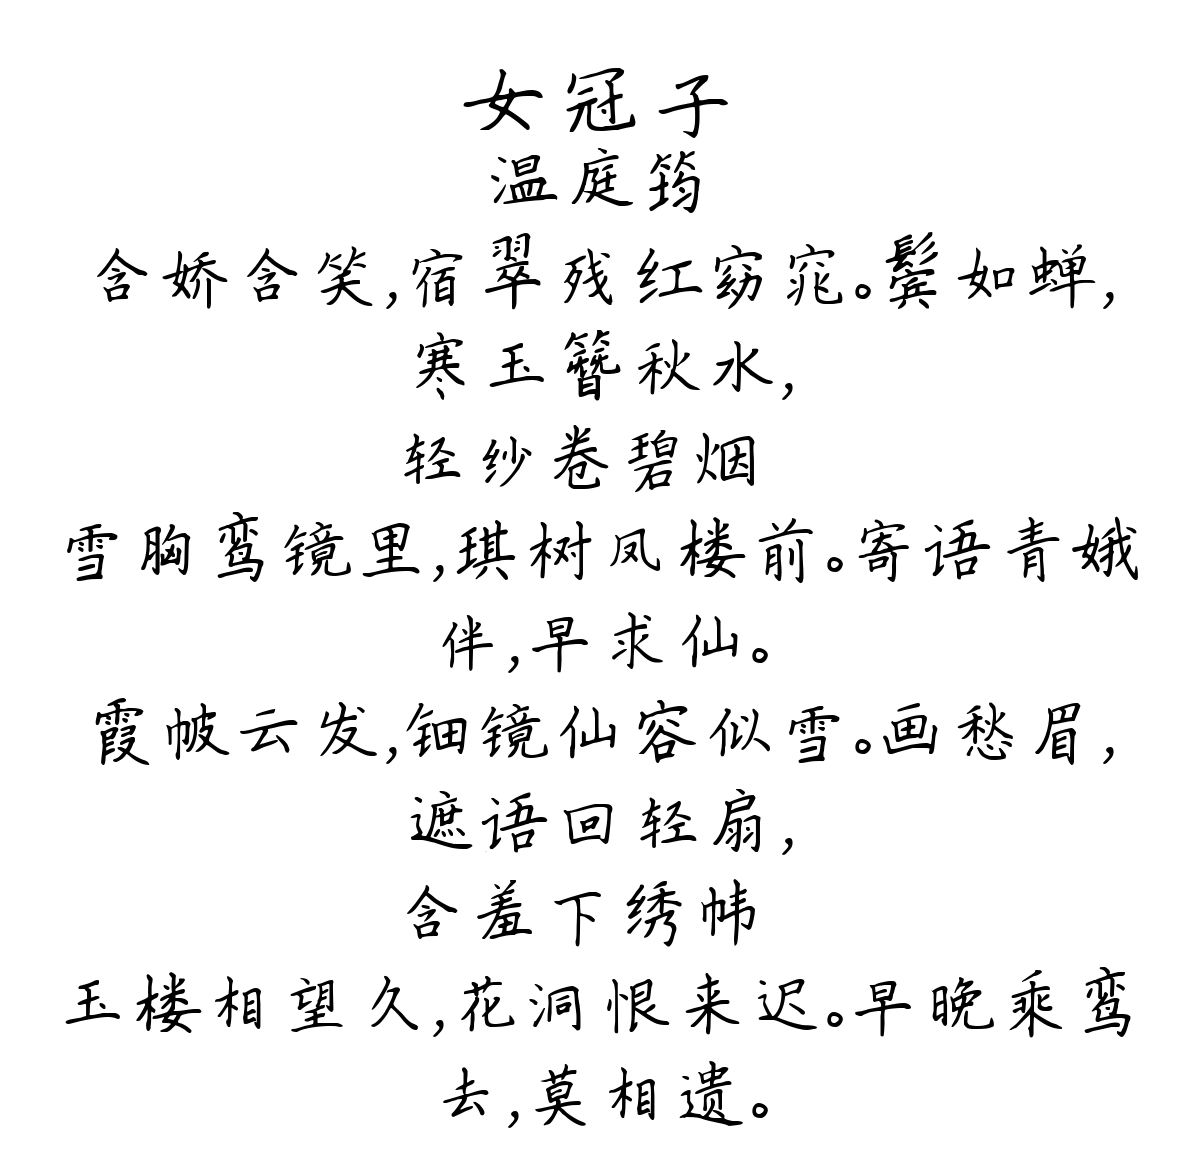 女冠子
温庭筠
含娇含笑,宿翠残红窈窕。鬓如蝉,
寒玉簪秋水,
轻纱卷碧烟
雪胸鸾镜里,琪树凤楼前。寄语青娥
伴,早求仙。
霞帔云发,钿镜仙容似雪。画愁眉,
遮语回轻扇,
含羞下绣帏
玉楼相望久,花洞恨来迟。早晚乘鸾
去,莫相遗。